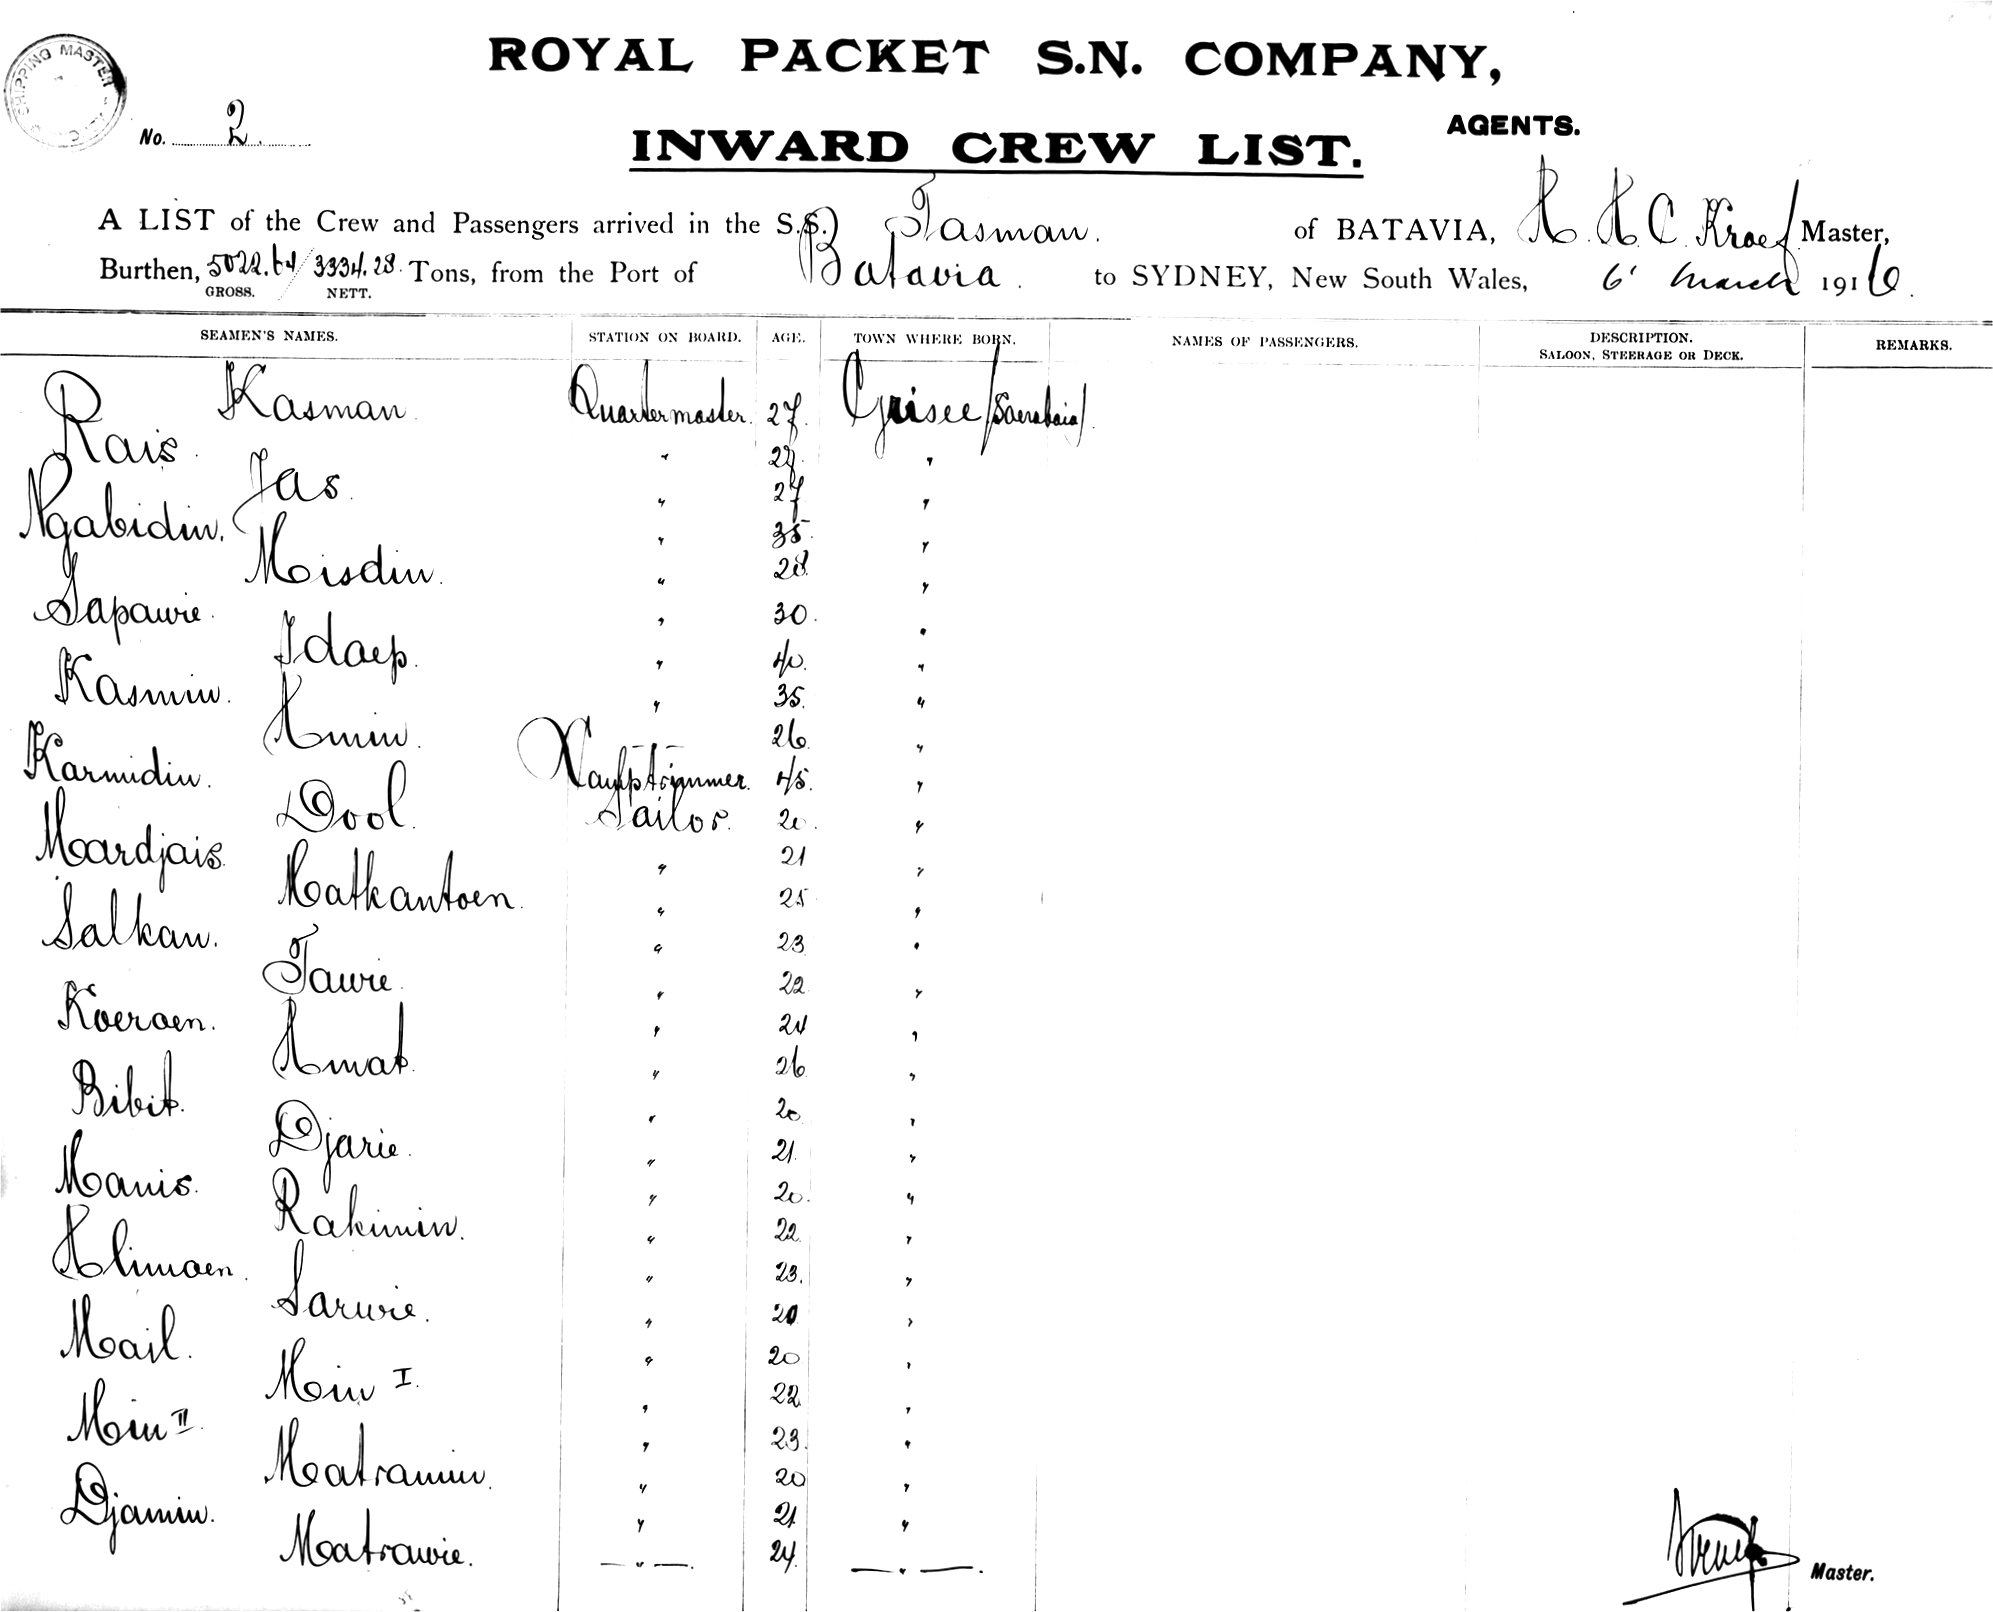 SHIPPING MASTER
ROYAL PACKET S.N. COMPANY,
AGENTS.
No. 2.
INWARD CREW LIST.
A LIST of the Crew and Passengers arrived in the S.S. Tasman. of BATAVIA, H. H. C. Kroef Master,
Burthen, 5022.64 / 3334.28. Tons, from the Port of Batavia. to SYDNEY, New South Wales, 6' March 1916.
GROSS. NETT.
SEAMEN'S NAMES. STATION ON BOARD. AGE. TOWN WHERE BORN. NAMES OF PASSENGERS. DESCRIPTION. SALOON, STEERAGE OR DECK. REMARKS.
Kasman. Quartermaster. 27. Grisee/Soerabaia/.
Rais. " 29. "
Jas. " 27 "
Ngabidin. " 35. "
Misdin. " 28. "
Sapawie. " 30. "
Idaep. " 40. "
Kasmin. " 35. "
Amin. " 26. "
Karmidin. trimmer. 45. "
Dool. Sailor. 20. "
Mardjais. " 21 "
Matkantoen. " 25 "
Salkan. " 23 "
Tawie. " 22. "
Koeroen. " 24 "
Amat. " 26. "
Bibit. " 20 "
Djarie. " 21. "
Manis. " 20. "
Rakimin. " 22. "
Alimoen. " 23. "
Sarwie. " 20 "
Mail. " 20 "
Min I. " 22 "
Min II. " 23. "
Matramin. " 20 "
Djamin. " 21 "
Matrawie. — " — 24. — " —.
Master.